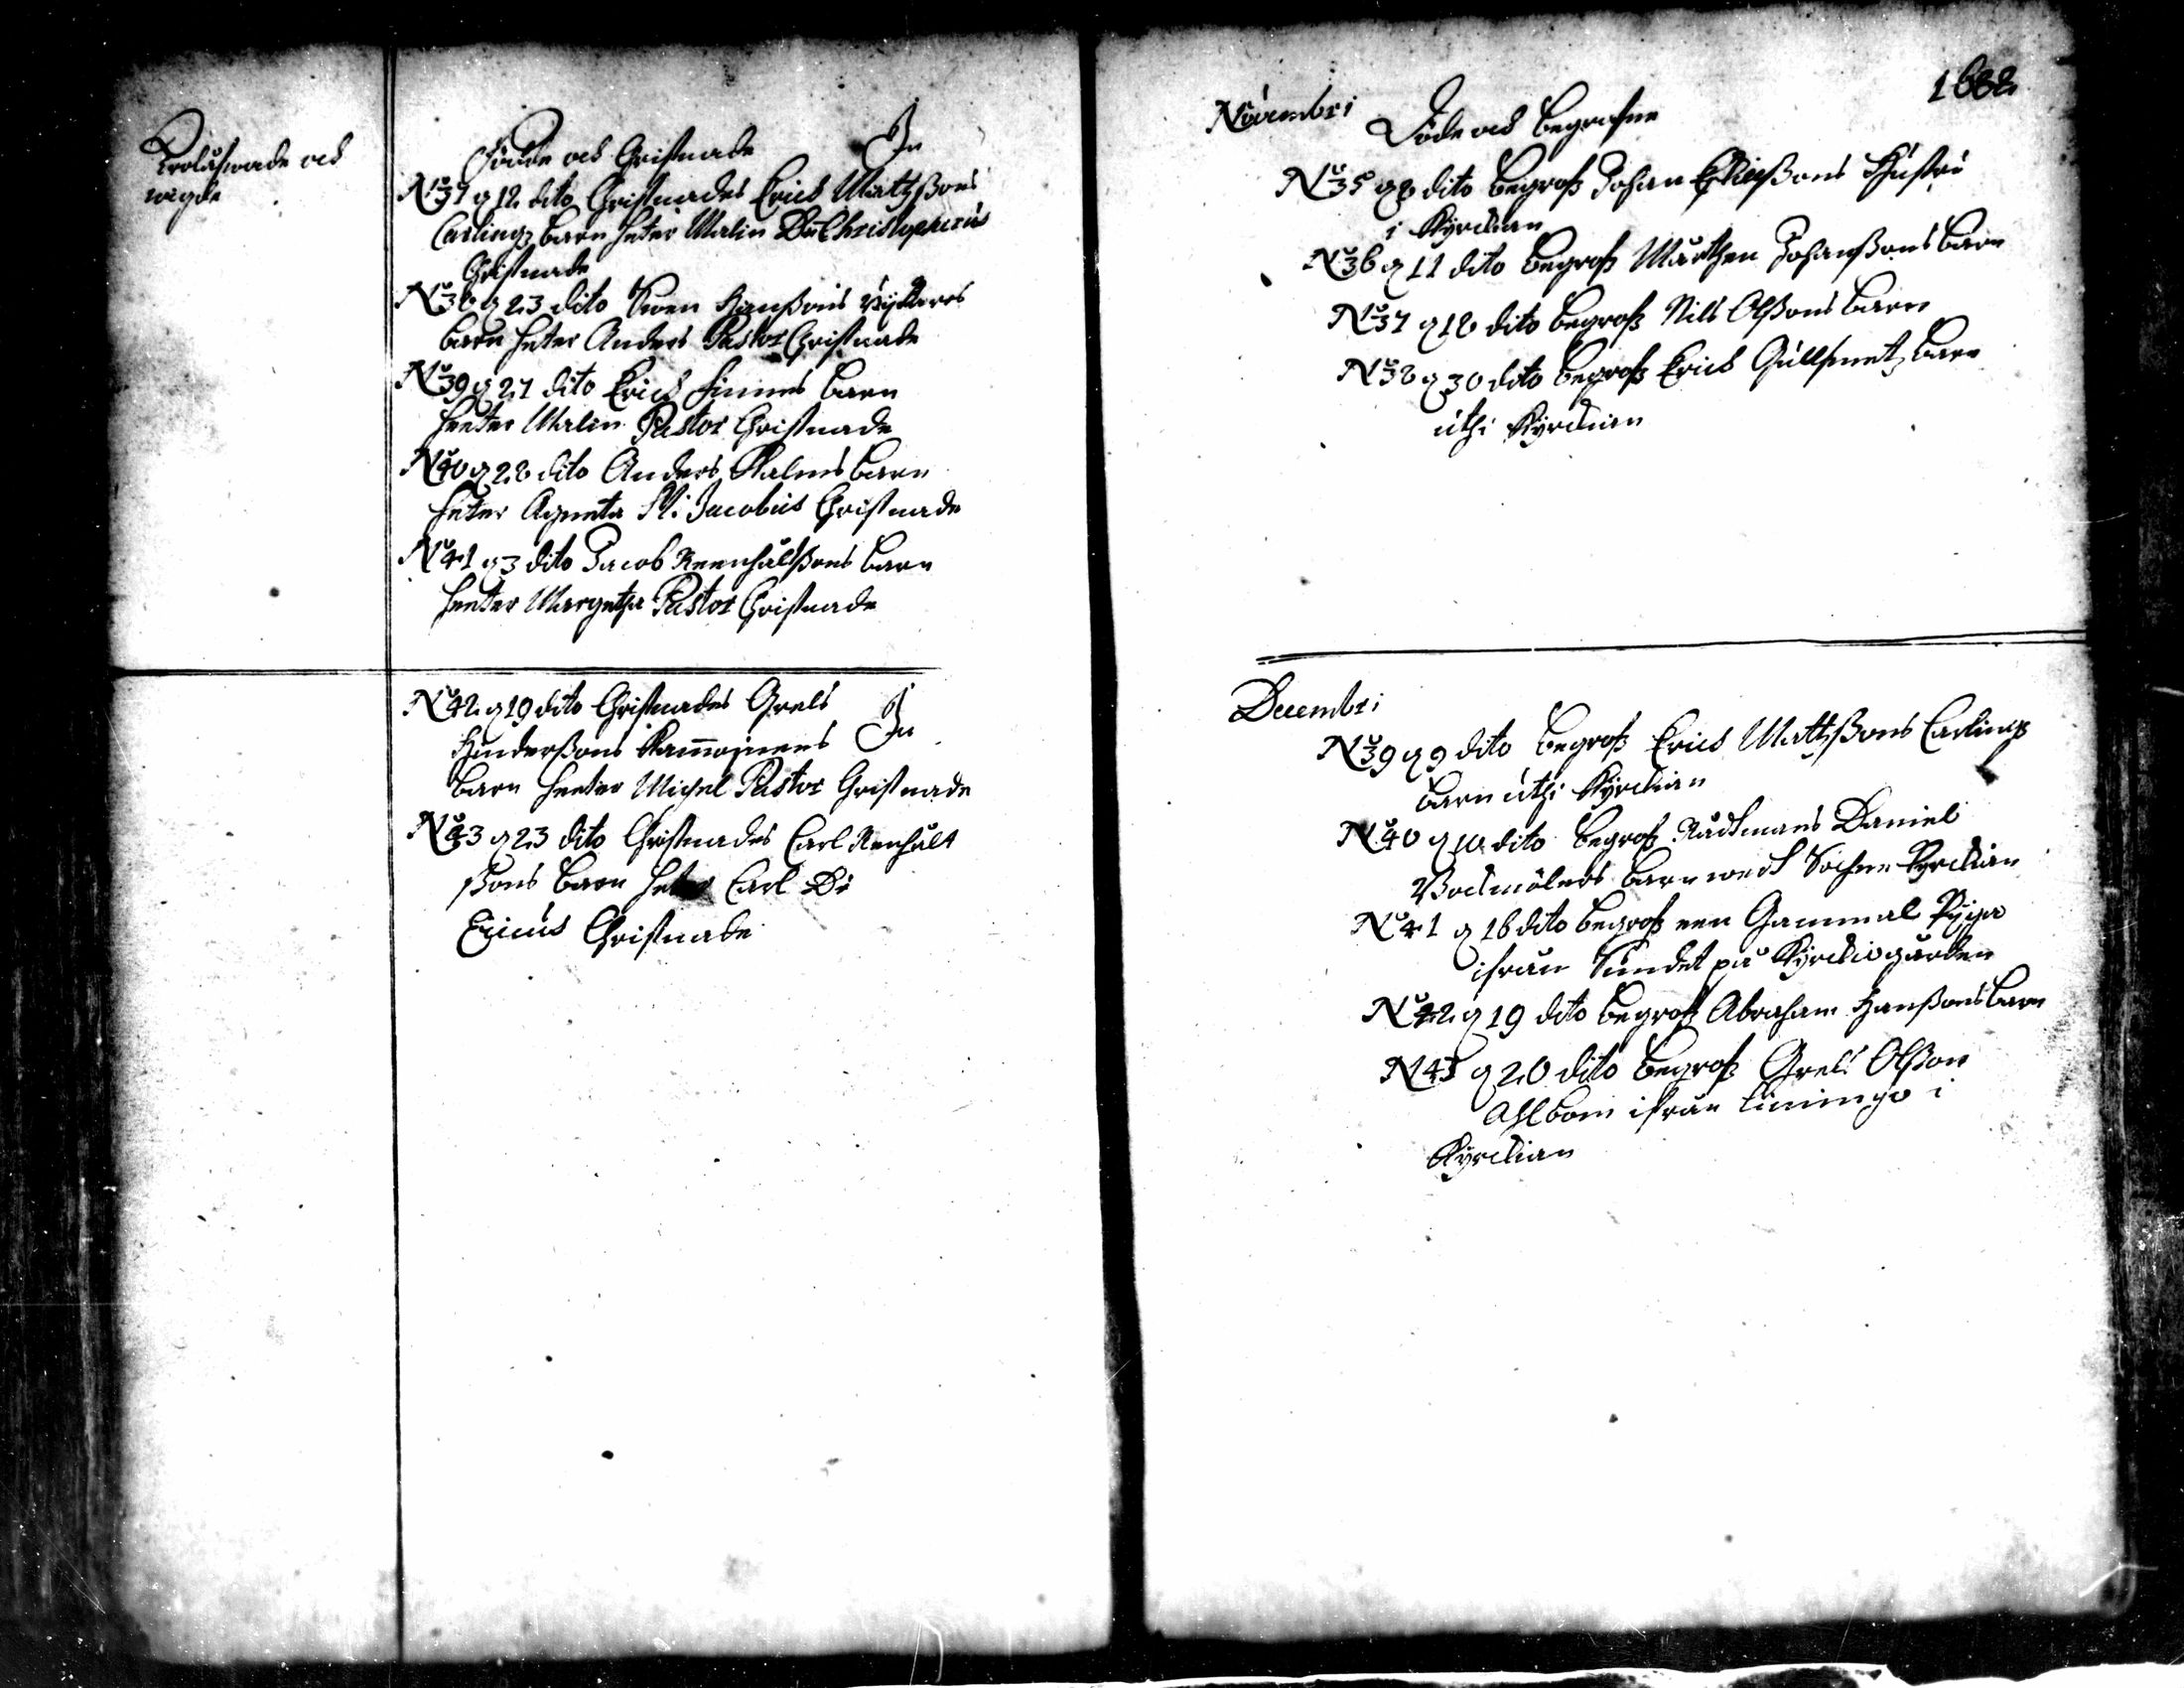 Trolåfwade och
wigde
Födde och Christnade
In
No 37 d 12 dito Christnades Erich Mattzßons
Carlingz barn heter Malin Dn Christophorus
Christnade
No 38 d 23 dito Swen Hanßons Ryttares
barn heter Anders Pastor Christnade
No 39 d 27 dito Erich Finnes barn
heeter Malin Pastor Christnade
No 40 d 28 dito Anders Kalms barn
heter Agneta H: Jacobus Christnade
No 41 d 3 dito Jacob Reenhältßons barn
heeter Margetha Pastor Christnade
No 42 d 19 dito Christnades Grels
Hinderßons In
barn heeter Michel Pastor Christnade
No 43 d 23 dito Christnades Carl Renhält
ßons barn heter Carl Dn
Ericus Christnade
1682
Novembri
Döde och begrafne
No 35 d 8 dito begrofz Johan Ericßons Hustru
i Kyrckian
No 36 d 11 dito begrofz Mårthen Johanßons barn
No 37 d 18 dito begrofz Nils Olßons barn
No 38 d 30 dito begrofz Erich Gullsmetz barn
uthi Kyrckian
Decembri
No 39 d 9 dito begrofz Erich Mattzßons Carlings
barn uthi Kyrckian
No 40 d 10 dito begrofz Rådhmans Daniel
Wockmölers barn wedh Sochne Kyrckian
No 41 d 16 dito begrofz een Gammal Pyga
ifrån Sundet på Kyrckiogården
No 42 d 19 dito begrofz Abraham Hanßons barn
N 43 d 20 dito begrofz Grels Olßon
Ahlbom ifrån Limingo i
Kyrckian